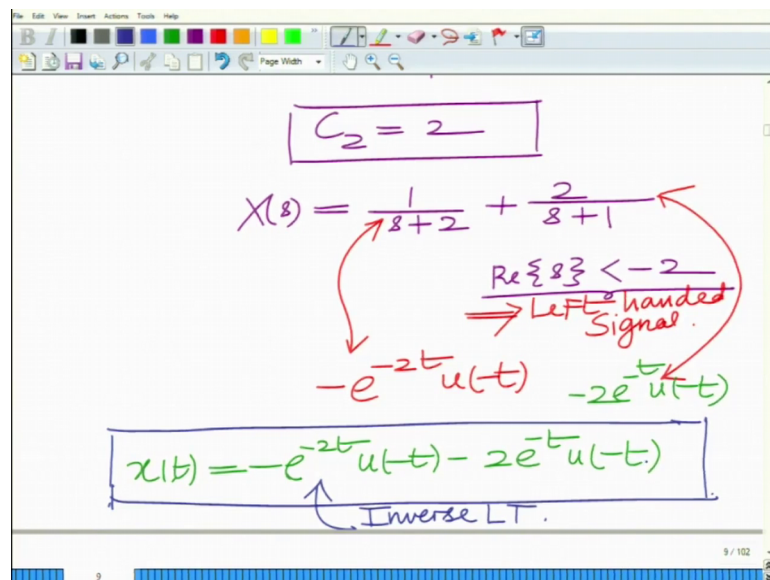 File Edit View Insert Actions Tools Help
B I
Page Width
C₂ = 2
X(s) = 1/(s+2) + 2/(s+1)
Re{s} < -2
⇒ Left handed
Signal.
-e^{-2t}u(-t) -2e^{-t}u(-t)
x(t) = -e^{-2t}u(-t) - 2e^{-t}u(-t).
Inverse LT.
9 / 102
9